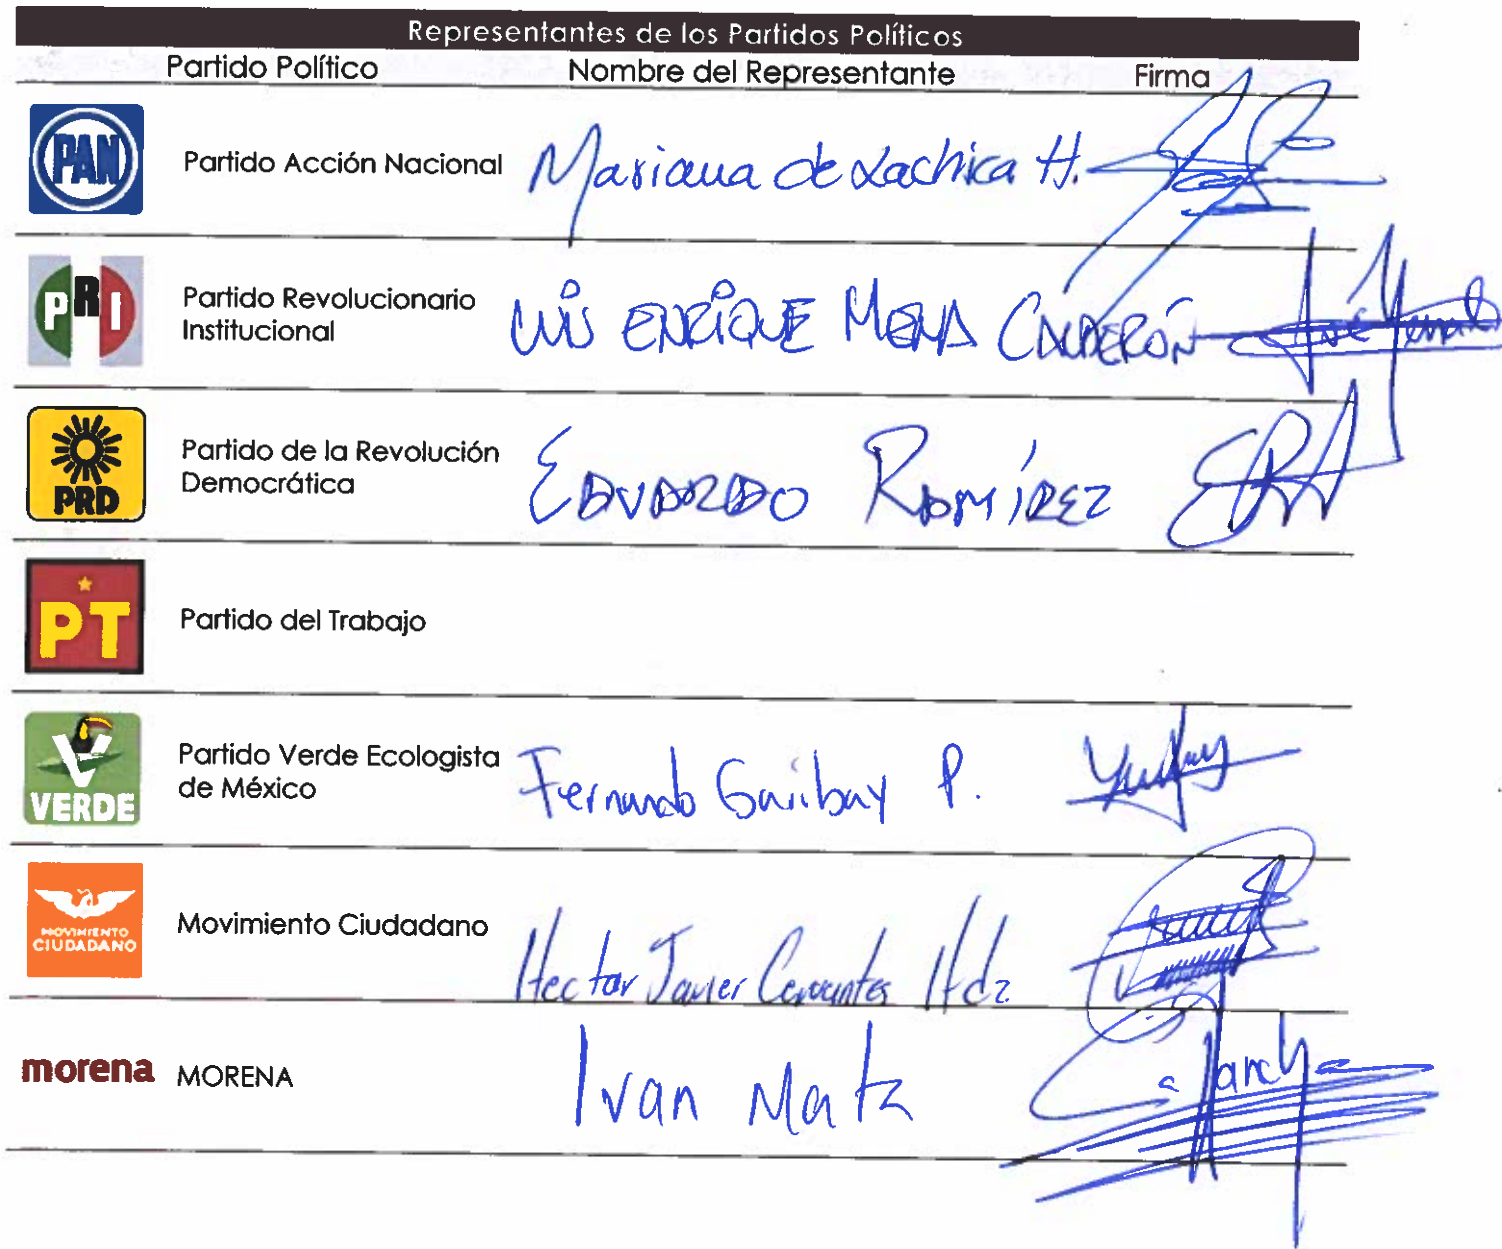 Representantes de los Partidos Políticos
Partido Político Nombre del Representante Firma
PAN Partido Acción Nacional Mariana de Lachica H.
PRI Partido Revolucionario
Institucional LUIS ENRIQUE MENA CALDERÓN
PRD Partido de la Revolución
Democrática EDUARDO RAMÍREZ
PT Partido del Trabajo
VERDE Partido Verde Ecologista
de México Fernando Garibay P.
MOVIMIENTO
CIUDADANO Movimiento Ciudadano Hector Javier Cervantes Hdz
morena MORENA Ivan Matz